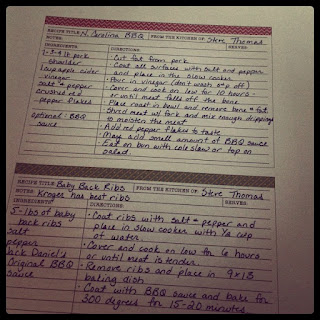 RECIPE TITLE N. Carolina BBQ FROM THE KITCHEN OF Steve Thomas
NOTES: SERVES:
INGREDIENTS: DIRECTIONS:
1-3-4 lb pork shoulder
1 cup apple cider vinegar
salt + pepper
crushed red pepper flakes
optional: BBQ sauce
• Cut fat from pork
• Coat all surfaces with salt and pepper
and place in the slow cooker
• Pour in vinegar (don't wash s+p off)
• Cover and cook on low for 10 hours -
or until meat falls off the bone
• Place roast in bowl and remove bone + fat
• Shred meat w/ fork and mix enough drippings
to moisten the meat
• Add red pepper flakes to taste
• May add small amount of BBQ sauce
• Eat on bun with cole slaw or top on
salad
RECIPE TITLE Baby Back Ribs FROM THE KITCHEN OF Steve Thomas
NOTES: Kroger has best ribs SERVES:
INGREDIENTS: DIRECTIONS:
5-lbs of baby
back ribs
salt
pepper
Jack Daniel's
Original BBQ
sauce
• Coat ribs with salt + pepper and
place in slow cooker with 1/2 cup
of water
• Cover and cook on low for 6 hours
or until meat is tender.
• Remove ribs and place in 9x13
baking dish
• Coat with BBQ sauce and bake for
300 degrees for 15-20 minutes.